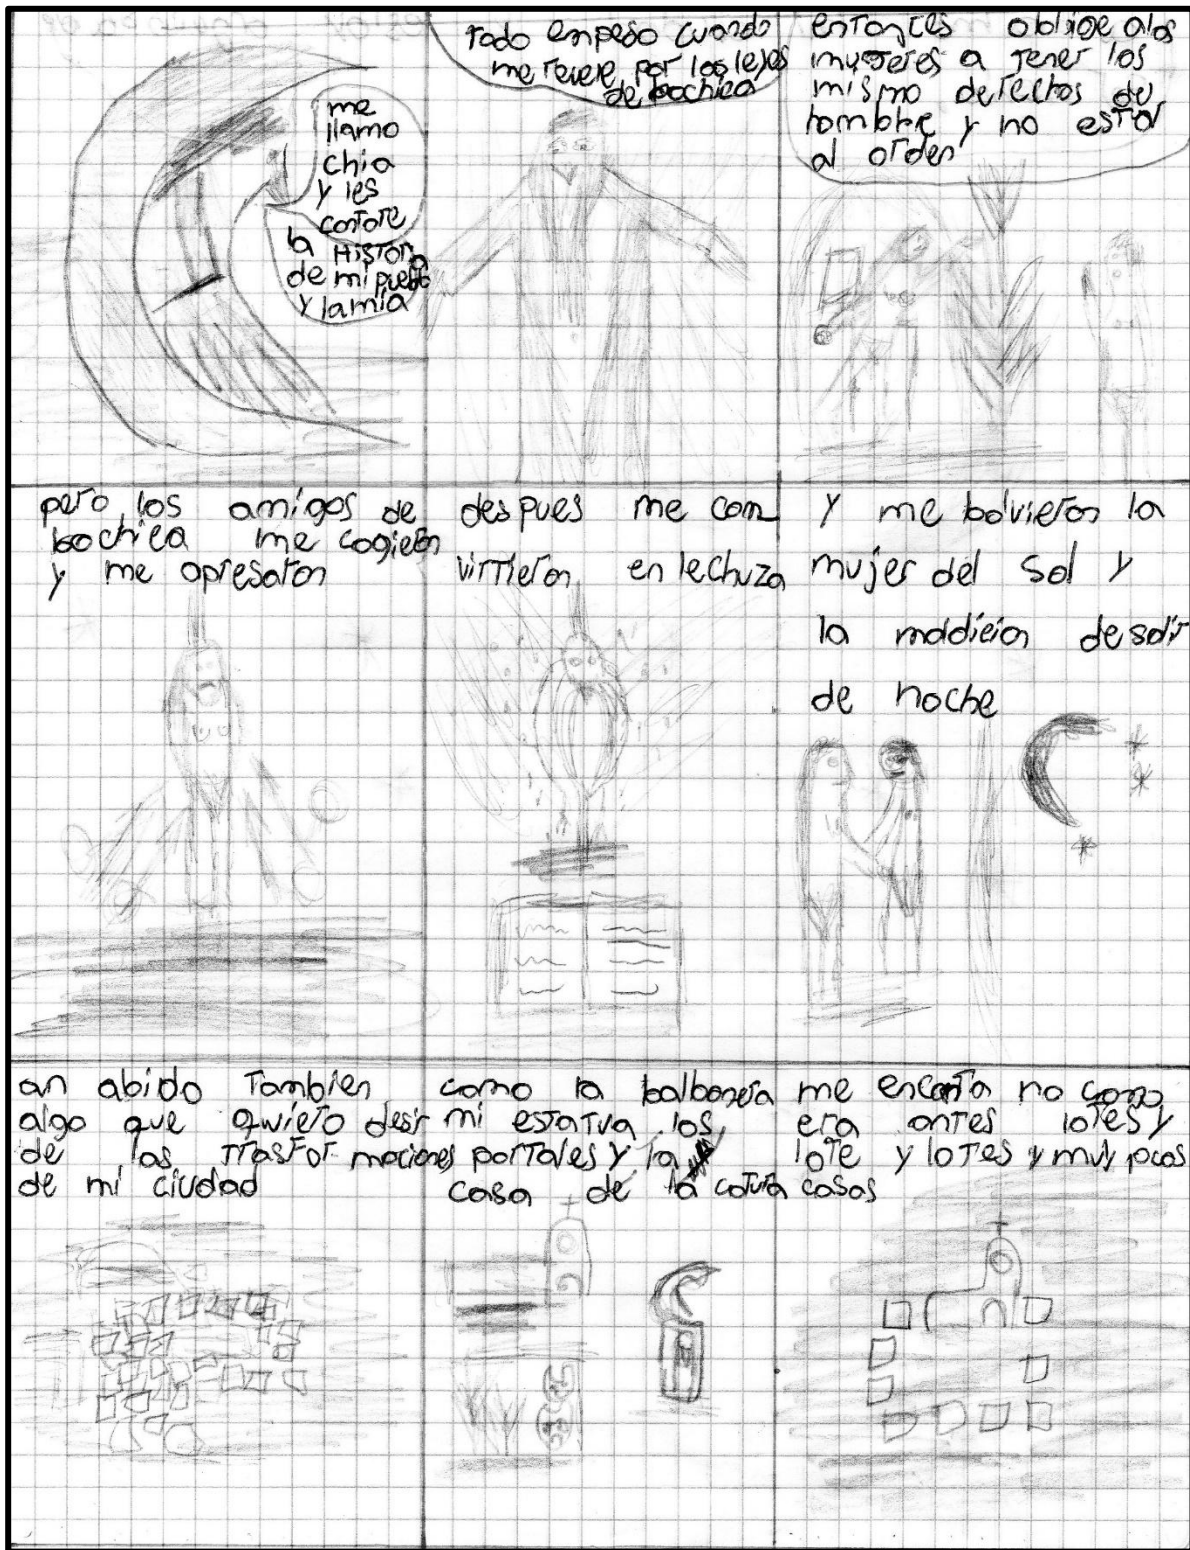 me
llamo
chia
y les
contare
la Historia
de mi pueblo
y la mia
todo empeso cuando
me revele por los leyes
de bochica
entonces oblige alos
mugeres a tener los
mismo derechos de
hombre y no estar
al orden
pero los amigos de
bochica me cogieron
y me apresaron
despues me con
virtieron en lechuza
y me bolvieron la
mujer del sol y
la maldicion de salir
de noche
an abido Tambien
algo que quiero desir
de las trasformaciones
de mi ciudad
como la balbanera
mi estatua los
portales y la
casa de la cotura
me encanta no como
era antes lotes y
lote y lotes y muy pocas
casas